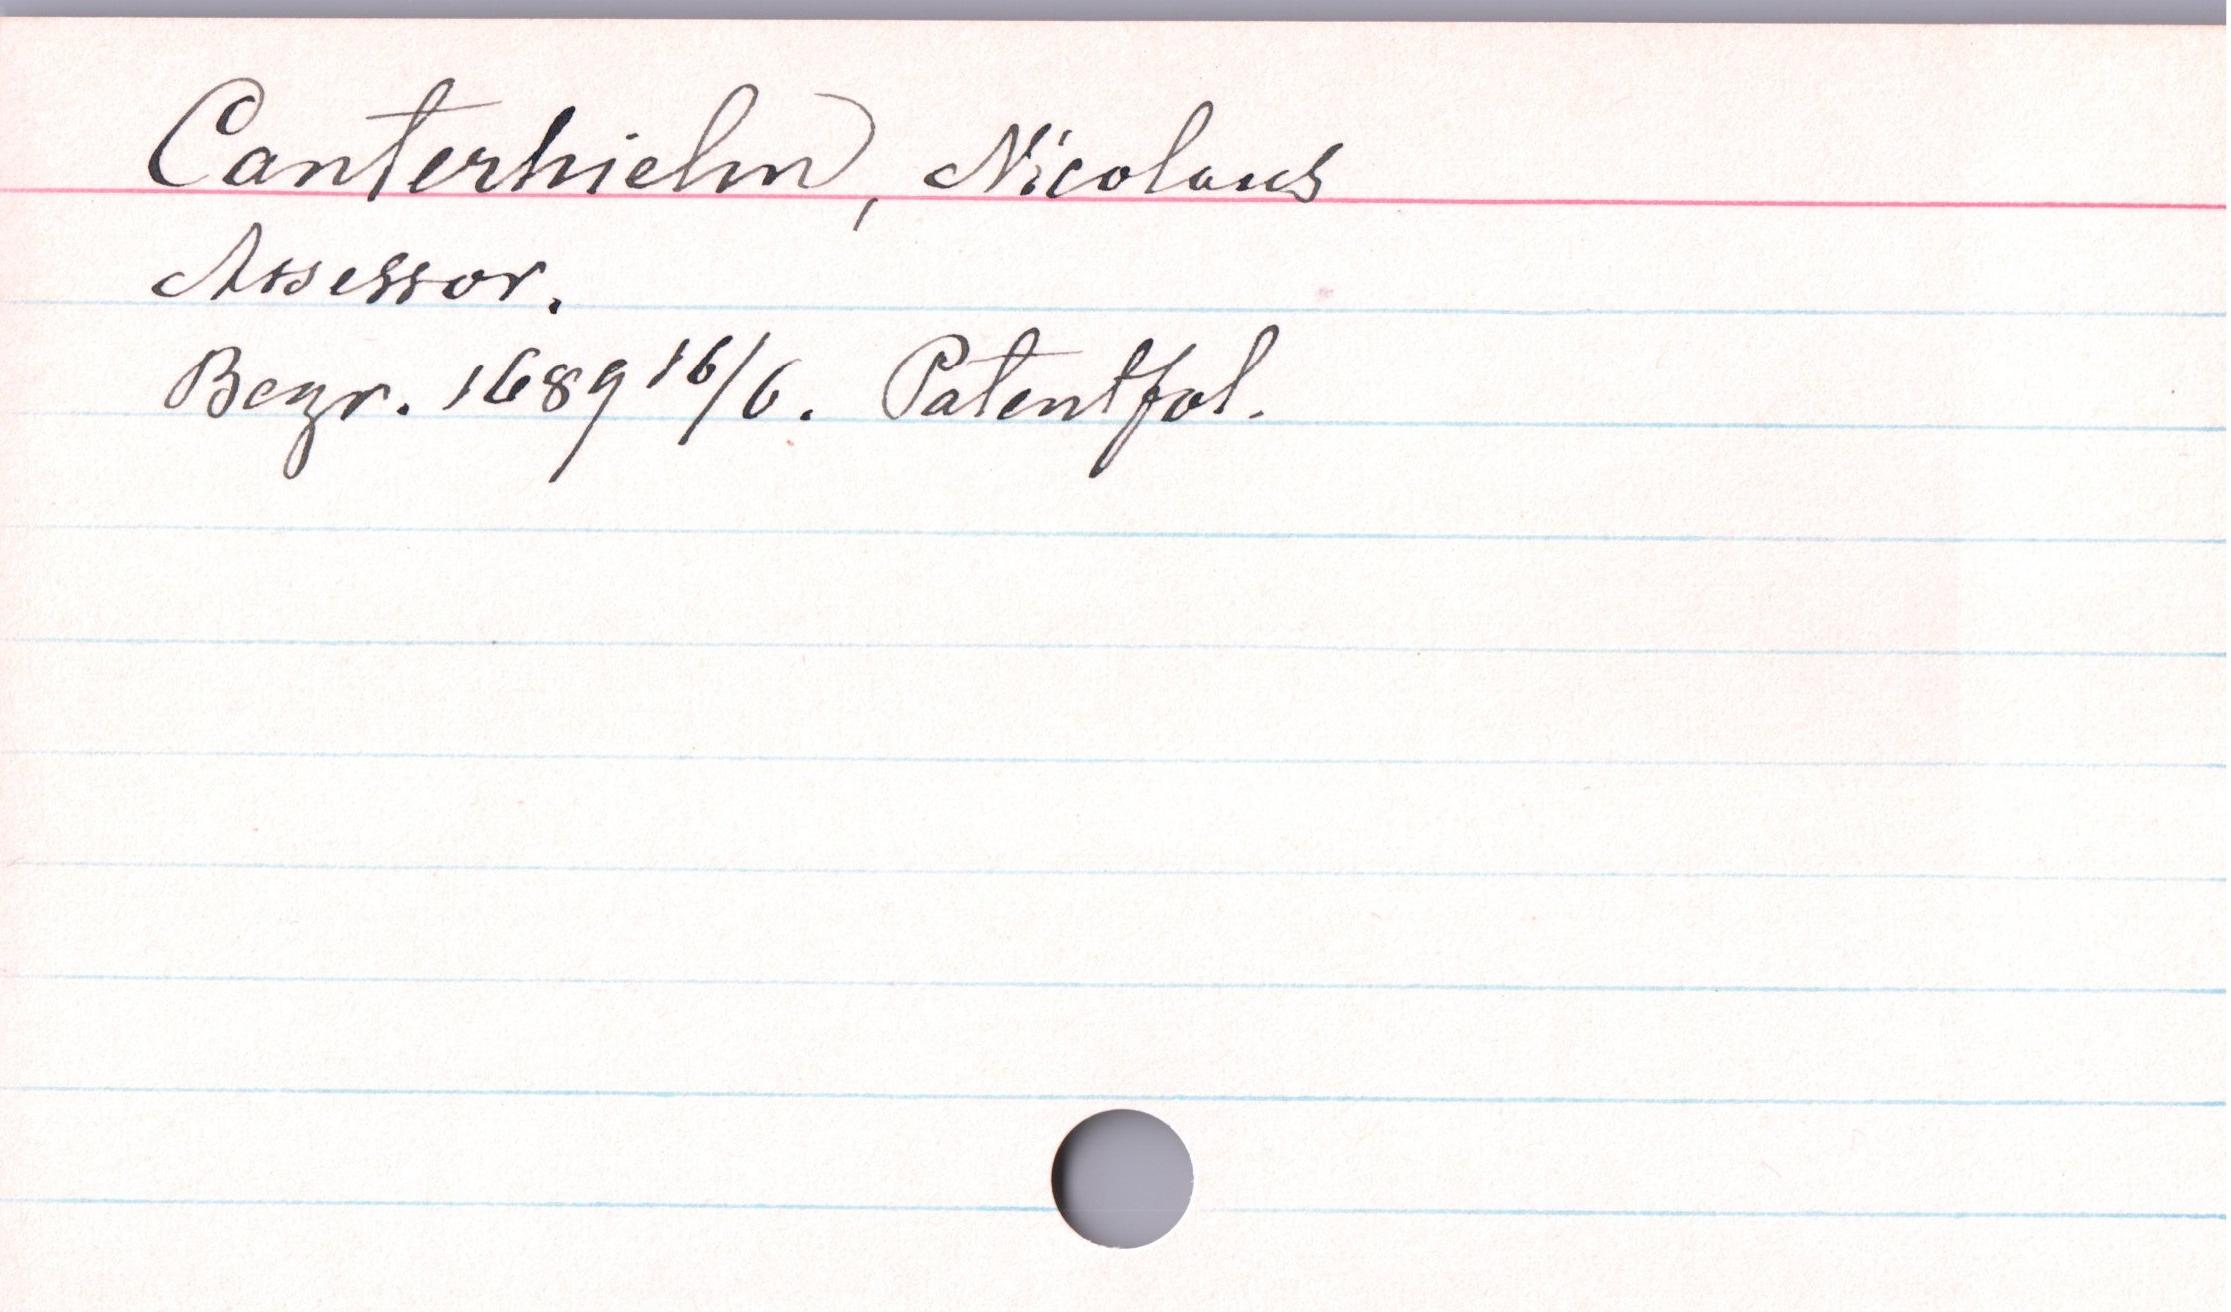 Canterhielm, Nicolaus
Assessor.
Begr. 1689 16/6. Patentfol.